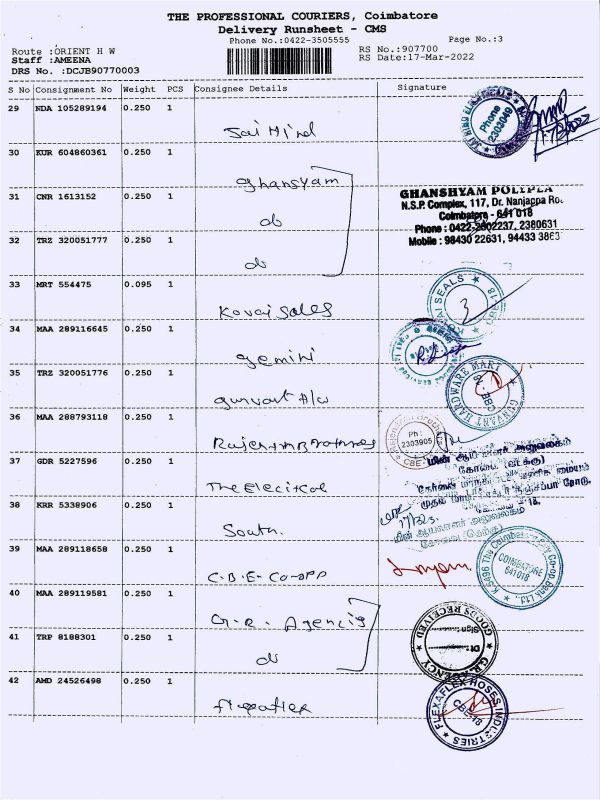 THE PROFESSIONAL COURIERS, Coimbatore
Delivery Runsheet - CMS
Phone No.:0422-3505555 Page No.:3
Route :ORIENT H W RS No.:907700
Staff :AMEENA RS Date:17-Mar-2022
DRS No. :DCJB90770003
S No Consignment No Weight PCS Consignee Details Signature
29 NDA 105289194 0.250 1
Jai Hind
Phone 2303049
30 KUR 604860361 0.250 1
Ghansyam
31 CNR 1613152 0.250 1
do
GHANSHYAM POLYPLA
N.S.P. Complex, 117, Dr. Nanjappa Ro
Coimbatore - 641 018
Phone : 0422-2602237, 2380631
Mobile : 98430 22631, 94433 3863
32 TRZ 320051777 0.250 1
do
33 MRT 554475 0.095 1
Kovai Sales
34 MAA 289116645 0.250 1
Gemini
35 TRZ 320051776 0.250 1
Gunvant H/w
GUNVANT HARDWARE MART
CBE - 18
36 MAA 288793118 0.250 1
Rajendra Brothers
Ph: 2303905
CBE
37 GDR 5227596 0.250 1
The Electrical
மின் ஆய்வாளர் அலுவலகம்
கோவை (வடக்கு)
38 KRR 5338906 0.250 1
South.
மின் ஆய்வாளர் அலுவலகம்
கோவை (தெற்கு)
39 MAA 289118658 0.250 1
C.B.E- Co-opp
COIMBATORE 641018
40 MAA 289119581 0.250 1
G.R. Agencis
41 TRP 8188301 0.250 1
do
GOODS RECEIVED
G.R. AGENCY
42 AMD 24526498 0.250 1
flexaflex
FLEXAFLEX HOSES INDUSTRIES
CBE-18